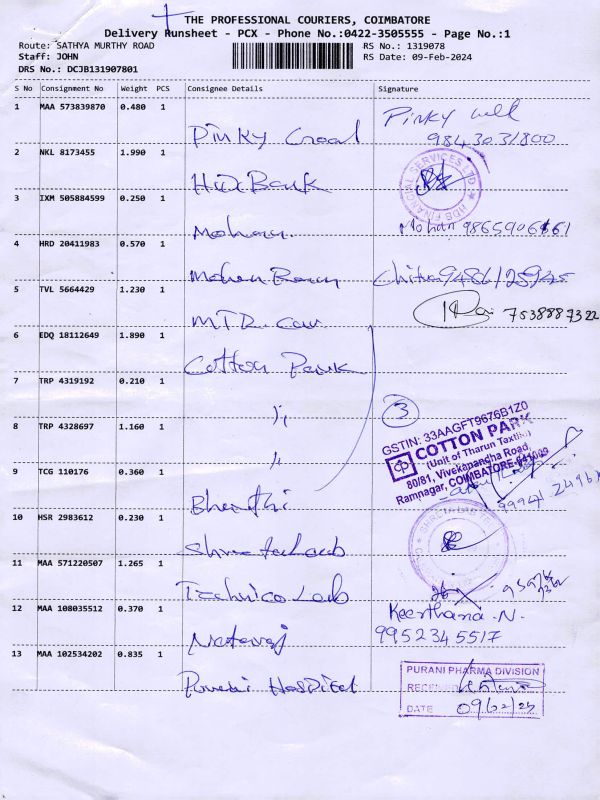 THE PROFESSIONAL COURIERS, COIMBATORE
Delivery Runsheet - PCX - Phone No.:0422-3505555 - Page No.:1
Route: SATHYA MURTHY ROAD
Staff: JOHN
DRS No.: DCJB131907801
RS No.: 1319078
RS Date: 09-Feb-2024
S No Consignment No Weight PCS Consignee Details Signature
1 MAA 573839870 0.480 1 Pinky
Pinky
9843031800
2 NKL 8173455 1.990 1 Bank
HDB FINANCIAL SERVICES LTD
3 IXM 505884599 0.250 1 Mohan
Mohan
4 HRD 20411983 0.570 1 Mohan
Chitra
5 TVL 5664429 1.230 1 MTR
7538887322
6 EDQ 18112649 1.890 1 Cotton Park
7 TRP 4319192 0.210 1 〃
3
8 TRP 4328697 1.160 1 〃
GSTIN: 33AAGFT9676B1Z0
COTTON PARK
(Unit of Tharun Textile)
80/81, Vivekanandha Road,
Ramnagar, COIMBATORE-641009
9 TCG 110176 0.360 1 Bharthi
10 HSR 2983612 0.230 1
11 MAA 571220507 1.265 1 Technico Lab
12 MAA 108035512 0.370 1 Nataraj
Keerthana.N.
9952345517
13 MAA 102534202 0.835 1 Purani Hospital
PURANI PHARMA DIVISION
RECEIVED
DATE